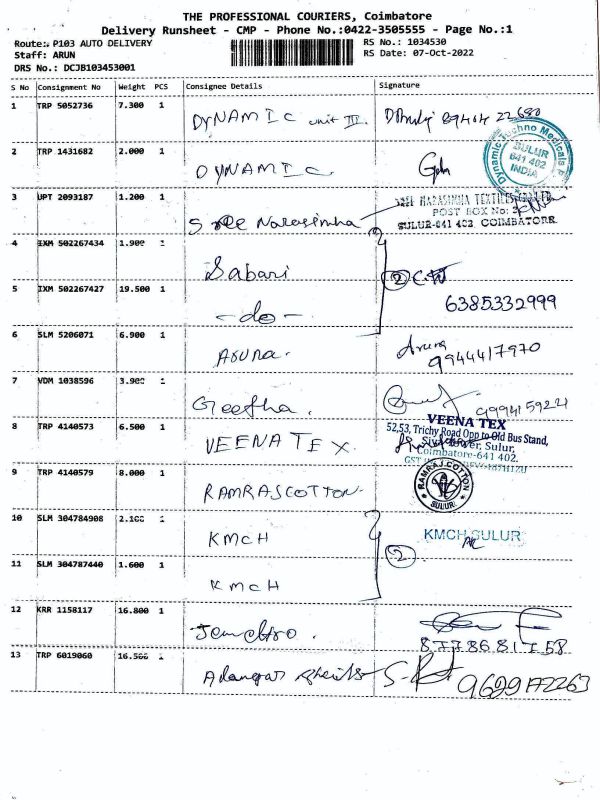 THE PROFESSIONAL COURIERS, Coimbatore
Delivery Runsheet - CMP - Phone No.:0422-3505555 - Page No.:1
Route: P103 AUTO DELIVERY
RS No.: 1034530
Staff: ARUN
RS Date: 07-Oct-2022
DRS No.: DCJB103453001
S No Consignment No Weight PCS Consignee Details Signature
1 TRP 5052736 7.300 1 DYNAMIC unit III.
Dynamic Techno Medicals
SULUR
641 402
INDIA
2 TRP 1431682 2.000 1 DYNAMIC.
3 UPT 2093187 1.200 1 Sree Narasimha
SREE NARASIMHA TEXTILES
POST BOX No: 2
SULUR-641 402, COIMBATORE
4 IXM 502267434 1.900 1 Sabari 2
5 IXM 502267427 19.500 1 -do- 6385332999
6 SLM 5206071 6.900 1 Aruna. Aruna
9944417970
7 VDM 1038596 3.900 1 Geetha.
8 TRP 4140573 6.500 1 VEENA TEX.
VEENA TEX
52,53, Trichy Road Opp to Old Bus Stand,
Sulur,
Coimbatore-641 402.
9 TRP 4140579 8.000 1 RAMRAJ COTTON.
RAMRAJ COTTON
SULUR
10 SLM 304784908 2.100 1 KMCH KMCH SULUR
2
11 SLM 304787440 1.600 1 KMCH
12 KRR 1158117 16.800 1
8778681758
13 TRP 6019060 16.500 1